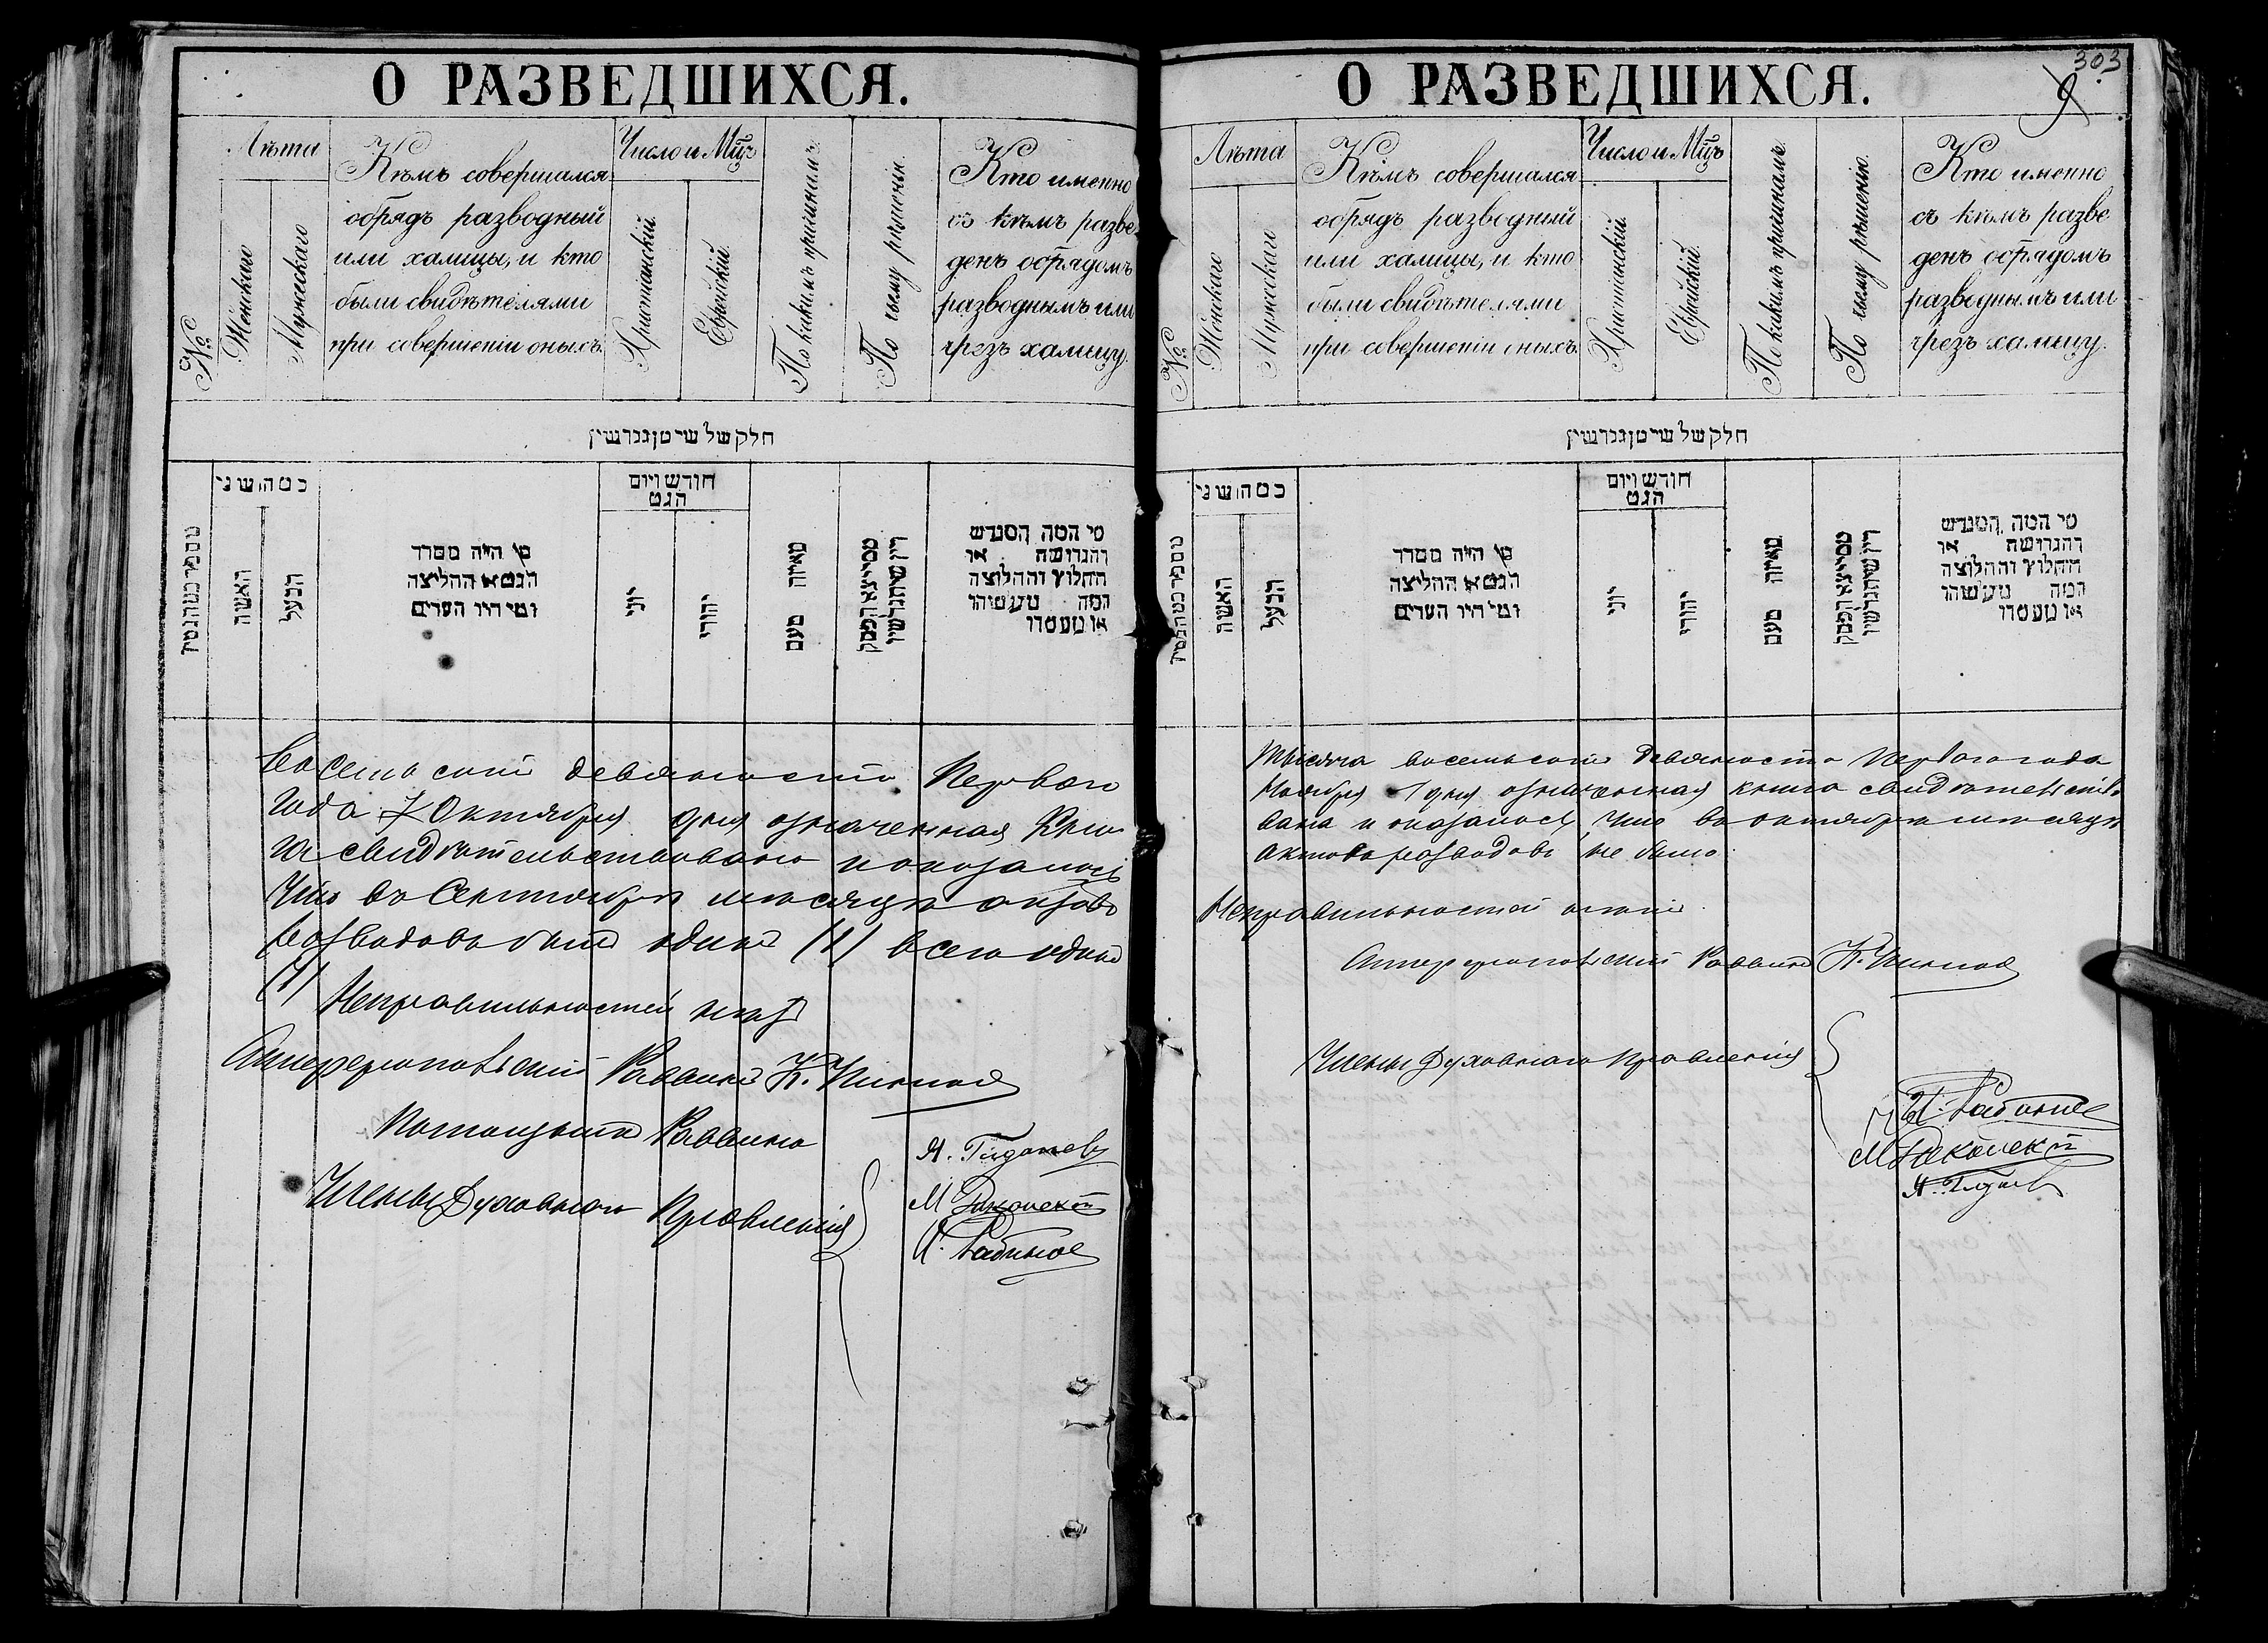 О РАЗВЕДШИХСЯ.
№
Лѣта
Женскаго
Мужескаго
Кѣмъ совершался
обрядъ разводный
или халицы, и кто
были свидѣтелями
при совершеніи оныхъ.
Число и Мц҃ъ
Христіанскій.
Еврейскій.
По какимъ причинамъ.
По чьему рѣшенію.
Кто именно
съ кѣмъ разве
денъ обрядомъ
разводнымъ или
чрезъ халицу.
חלק של שי טן גגרשין
כמה שני
האשה
הבעל
מי היה מסדר
הגט או החליצה
ומי היו העדים
חודש ויום
הגט
יוני
יהודי
מאיזה טעם
מי המה המגרש
והגרושה או
החלוץ והחלוצה
восемьсотъ девяносто Перваго
года 7 Октября дня означенная Кни
га свидѣтельствована и оказалось
что въ Сентябрѣ мѣсяцѣ актовъ
разводовъ былъ одинъ (1) всего одинъ
(1)
Неправильностей нѣтъ
Симферопольскій Раввинъ К. Пикной
Помощникъ Раввина
Члены Духовнаго Правленія
О РАЗВЕДШИХСЯ.
303
9
№
Лѣта
Женскаго
Мужескаго
Кѣмъ совершался
обрядъ разводный
или халицы, и кто
были свидѣтелями
при совершеніи оныхъ.
Число и Мц҃ъ
Христіанскій.
Еврейскій.
По какимъ причинамъ.
По чьему рѣшенію.
Кто именно
съ кѣмъ разве
денъ обрядомъ
разводнымъ или
чрезъ халицу.
חלק של שי טן גגרשין
כמה שני
האשה
הבעל
מי היה מסדר
הגט או החליצה
ומי היו העדים
חודש ויום
הגט
יוני
יהודי
מאיזה טעם
מי המה המגרש
והגרושה או
החלוץ והחלוצה
тысяча восемьсотъ девяносто Перваго года
Ноября 1 дня означенная книга свидѣтельство
вана и оказалось что въ октябрѣ мѣсяцѣ
актовъ разводовъ не было.
Неправильностей нѣтъ
Симферопольскій Раввинъ К. Пикной
Члены Духовнаго Правленія